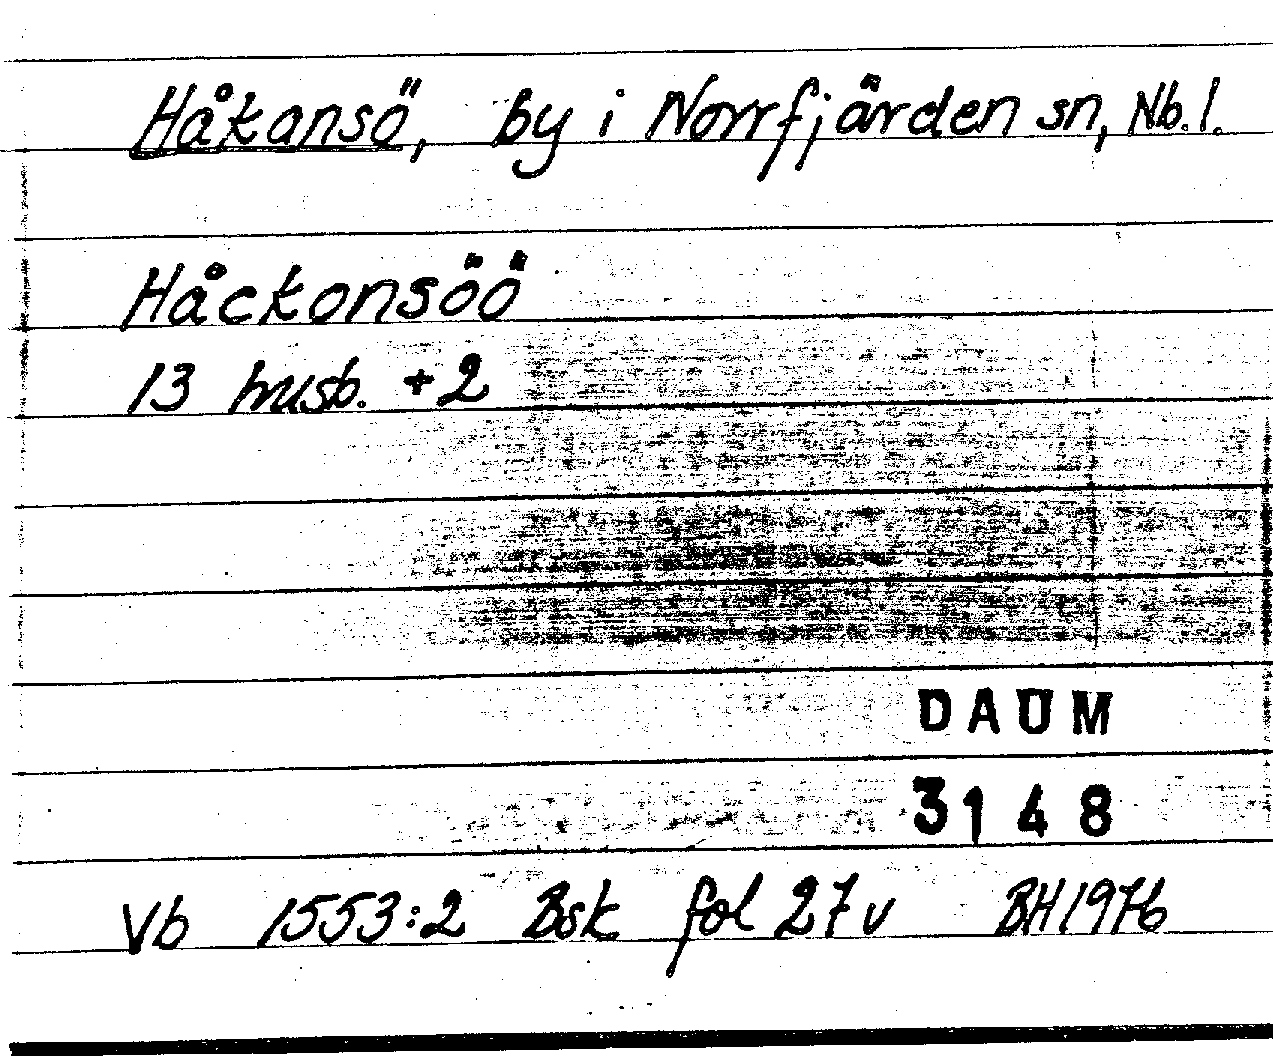 Håkansö, by i Norrfjärden sn, Nb. l.
Håckonsöö
13 husb. +2
DAUM
3148
Vb 1553:2 Bsk fol 27 v BH 1976